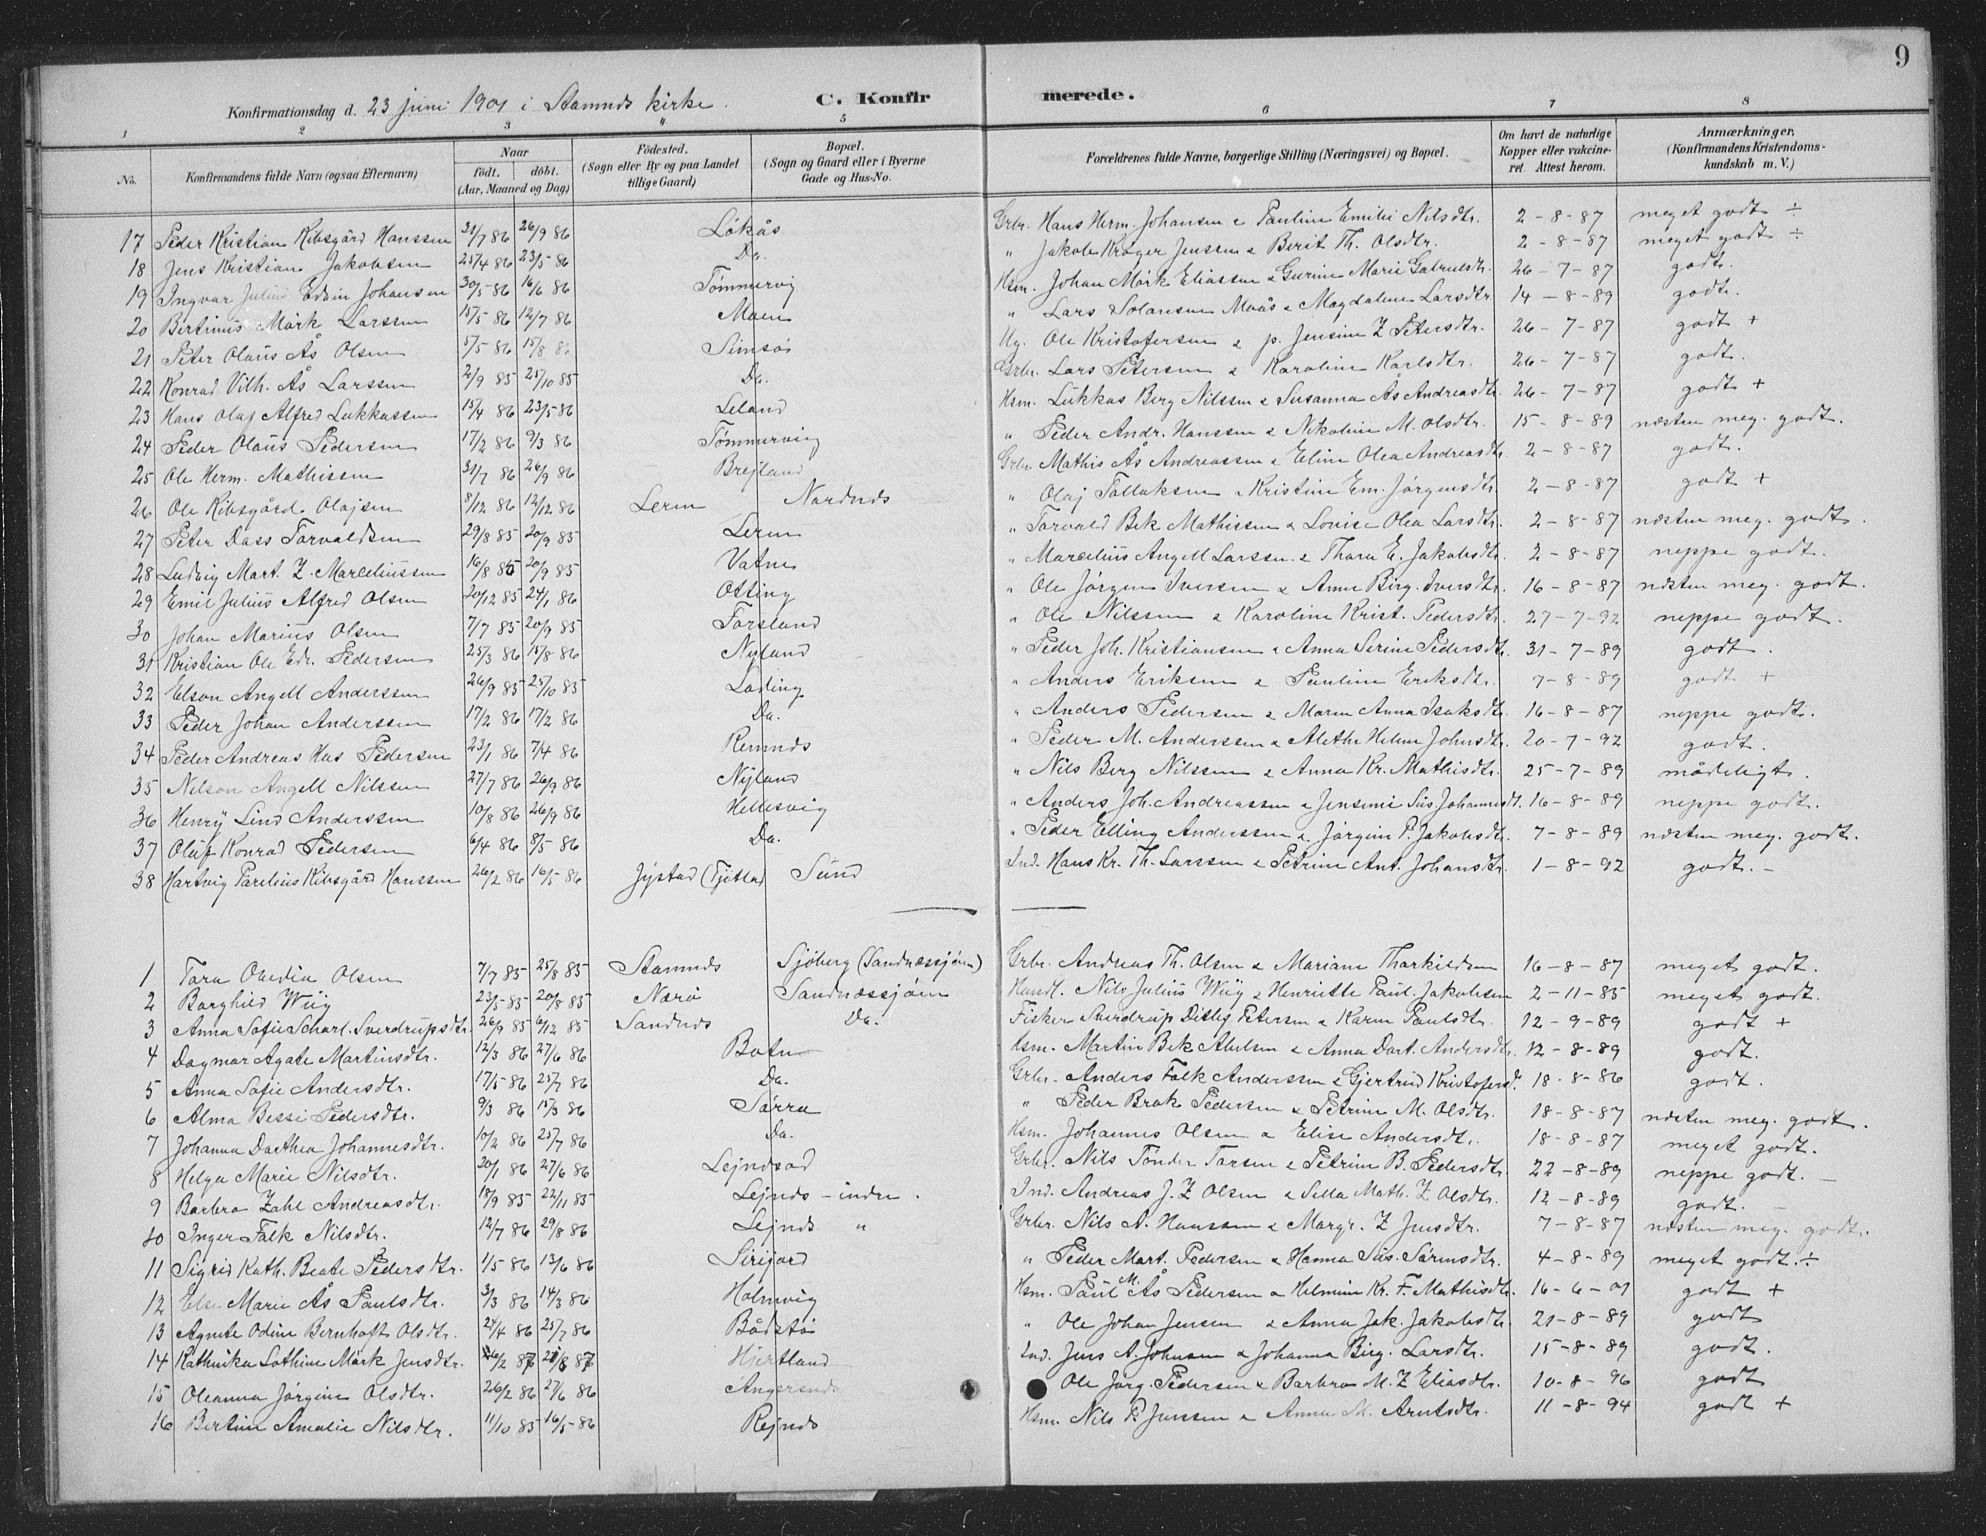 9
Konfirmationsdag d. 23 juni 1901 i Stamnes kirke. C. Konfirmerede.
1 2 3 4 5 6 7 8
No. Konfirmandens fulde Navn (ogsaa Efternavn) Naar födt. döbt. (Aar, Maaned og Dag) Födested. (Sogn eller By og paa Landet tillige Gaard) Bopæl. (Sogn og Gaard eller i Byerne Gade og Hus-No. Forældrenes fulde Navne, borgerlige Stilling (Næringsvei) og Bopæl. Om havt de naturlige Kopper eller vakcineret. Attest herom. Anmærkninger, (Konfirmandens Kristendomskundskab m. V.)
17 Peder Kristian Ribsgård Hanssen 31/7 86 26/9 86 Løkås Grbr. Hans Herm. Johansen & Pauline Emilie Nilsdtr. 2-8-87 meget godt ÷
18 Jens Kristian Jakobsen 25/4 86 23/5 86 Do. " Jakob Krøger Jenssen & Berit Th. Olsdtr. 2-8-87 meget godt ÷
19 Ingvar Julius Edvin Johansen 30/5 86 16/6 86 Tømmervig Hsm. Johan Mörk Eliassen & Gurine Marie Gabrielsdtr. 26-7-87 godt.
20 Bertinus Mörk Larssen 15/5 86 12/7 86 Moen " Lars Solansen Moås & Magdalena Larsdtr. 14-8-89 godt.
21 Peter Olaus Ås Olsen 5/5 86 15/8 86 Simsø Ug. Ole Kristofersen & p. Jensine Z Petersdtr. 26-7-87 godt +
22 Konrad Vilh. Ås Larssen 2/9 85 25/10 85 Do. Grbr. Lars Petersen & Karoline Karlsdtr. 26-7-87 godt.
23 Hans Olaj Alfred Lukkassen 15/4 86 23/5 86 Leland Hsm. Lukkas Berg Nilssen & Susanna Ås Andreasdtr. 26-7-87 godt +
24 Peder Olaus Pedersen 17/2 86 9/3 86 Tømmervig " Peder Andr. Hanssen & Nikoline M. Olsdtr. 15-8-89 næsten meg. godt.
25 Ole Herm. Mathissen 31/7 86 26/9 86 Brejland Grbr. Mathis Ås Andreassen & Eline Olea Andreasdtr. 2-8-87 godt.
26 Ole Ribsgård Olajsen 8/12 86 12/12 86 Lerm Nordnes " Olaj Tollaksen & Kristine Em. Jørgensdtr. 2-8-87 godt +
27 Peter Dass Torvaldsen 29/8 85 20/9 85 Lerm " Torvald Bek Mathissen & Lovise Olea Larsdtr. 2-8-87 næsten meg. godt.
28 Ludvig Mart. Z. Marceliussen 16/8 85 20/9 85 Vatne " Marcelius Angell Larssen & Thora E. Jakobsdtr. 2-8-87 neppe godt.
29 Emil Julius Alfred Olsen 20/12 85 24/1 86 Otting " Ole Jørgen Iversen & Anne Birg. Iversdtr. 16-8-87 næsten meg. godt.
30 Johan Marius Olsen 7/7 85 20/9 85 Torsland " Ole Nilssen & Karoline Krist. Pedersdtr. 27-7-92 neppe godt.
31 Kristian Ole Edv. Pedersen 25/3 86 15/8 86 Nyland " Peder Joh. Kristiansen & Anna Serine Pedersdtr. 31-7-89 godt.
32 Elson Angell Anderssen 26/9 85 25/10 85 Lading " Anders Eriksen & Pauline Eriksdtr. 7-8-89 godt +
33 Peder Johan Anderssen 17/2 86 17/2 86 Do. " Anders Pedersen & Maren Anna Isaksdtr. 16-8-87 neppe godt.
34 Peder Andreas Hus Pedersen 23/1 86 7/4 86 Remnes " Peder M. Anderssen & Alethe Helene Johnsdtr. 20-7-92 godt.
35 Nelson Angell Nilssen 27/7 86 26/9 86 Nyland " Nils Berg Nilssen & Anna Kr. Mathisdtr. 25-7-89 mådeligt.
36 Henry Lind Anderssen 10/8 86 26/9 86 Hellesvig " Anders Joh. Andreassen & Jensine Sus. Johannesdt. 16-8-89 neppe godt.
37 Oluf Konrad Pedersen 6/4 86 8/5 86 Do. " Peder Elling Anderssen & Jørgine P. Jakobsdtr. 7-8-89 næsten meg. godt.
38 Hartvig Parelius Ribsgård Hanssen 26/2 86 16/5 86 Jystad (Tjøtta) Sund Ind. Hans Kr. Th. Larssen & Petrine Ant. Johansdtr. 1-8-92 godt. -
1 Tora Ovedia Olsen 7/7 85 25/8 85 Stamnes Sjöberg (Sandnæssjøen) Grbr. Andreas Th. Olsen & Mariane Thorkildsen 16-8-87 meget godt.
2 Borghild Wiig 23/5 85 20/8 85 Nærö Sandnæssjøen Handl. Nils Julius Wiig & Henriette Paul. Jakobsen 2-11-85 meget godt.
3 Anna Sofie Scharl. Sverdrupsdtr. 26/9 85 6/12 85 Sandnes Do. Fisker Sverdrup Ditlef Petersen & Karen Paulsdtr. 12-9-89 godt +
4 Dagmar Agate Martinsdtr. 12/3 86 27/6 86 Botn Hsm. Martin Bek Abelsen & Anna Dort. Andersdtr. 12-8-89 godt.
5 Anna Sofie Andersdtr. 17/5 86 25/7 86 Do. Grbr. Anders Falk Anderssen & Gjertrud Kristofersd. 18-8-86 godt.
6 Alma Bessi Pedersdtr. 9/3 86 15/3 86 Sørra " Peder Brok Pedersen & Petrine M. Olsdtr. 18-8-87 næsten meg. godt.
7 Johanna Dorthea Johannesdtr. 10/2 86 25/7 86 Do. Hsm. Johannes Olsen & Elise Andersdtr. 18-8-87 meget godt.
8 Helga Marie Nilsdtr. 30/1 86 27/6 86 Lejnesod Grbr. Nils Tönder Torsen & Petrine B. Pedersdtr. 22-8-89 neppe godt. -
9 Barbro Zahl Andreasdtr. 18/9 85 22/11 85 Lejnes - indre. Ind. Andreas J. Z Olsen & Sella Math. Z Olsdtr. 12-8-89 godt.
10 Inger Falk Nilsdtr. 12/7 86 29/8 86 Lejnes " Grbr. Nils A. Hanssen & Margr. Z Jensdtr. 7-8-87 næsten meg. godt.
11 Sigrid Kath. Beate Pedersdtr. 1/5 86 13/6 86 Sirijord " Peder Mart. Pedersen & Hanna Sus. Sörensdtr. 4-8-89 meget godt. ÷
12 Else Marie Ås Paulsdtr. 3/3 86 14/3 86 Holmvig Hsm. Paul M. Ås Pedersen & Helmine Kr. F. Mathisdtr. 16-6-01 godt +
13 Agnete Odine Bernhoft Olsdtr. 24/4 86 25/7 86 Bådstø " Ole Johan Jensen & Anna Jak. Jakobsdtr. 21-8-89 godt
14 Kathinka Lothine Mörk Jensdtr. 26/2 87 21/8 87 Hjertland Ind. Jens A. Johnsen & Johanna Birg. Larsdtr. 15-8-89 godt.
15 Oleanna Jørgine Olsdtr. 26/2 86 27/6 86 Angersnes Ole Jørg. Pedersen & Barbro M. Z Eliasdtr. 10-8-96 godt
16 Bertine Amalie Nilsdtr. 11/10 85 16/5 86 Rejnes Hsm. Nils P. Jensen & Anna M. Arntsdtr. 11-8-94 godt +